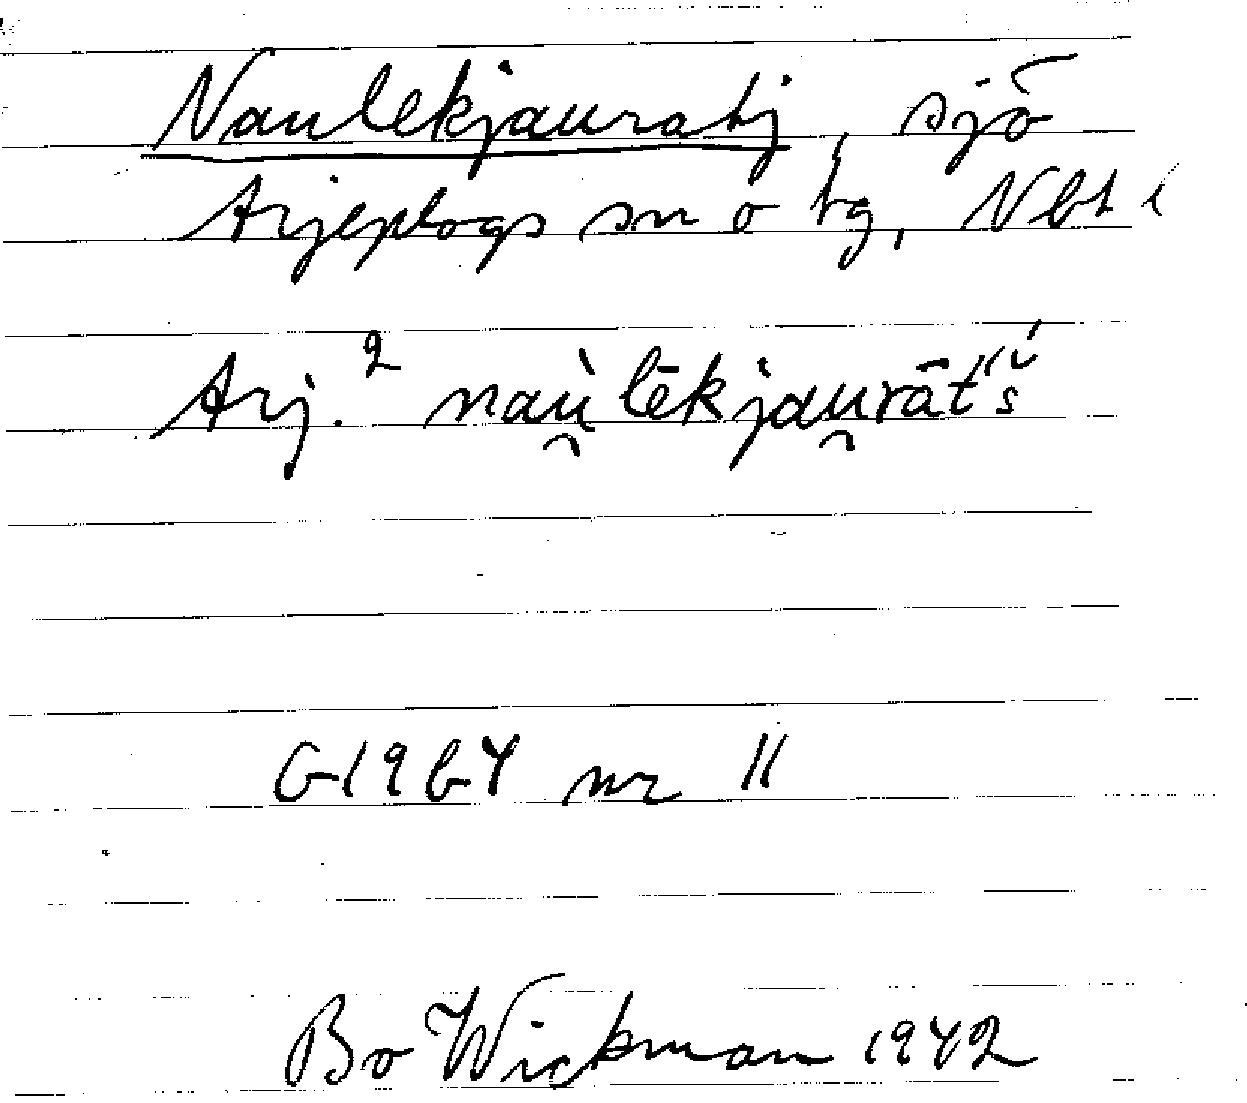 Naulekjauratj, sjö
Arjeplogs sn o tg, Nbt l
Arj.² naù̯lēkjau̯rāt́š́
G1964 nr 11
Bo Wickman 1942